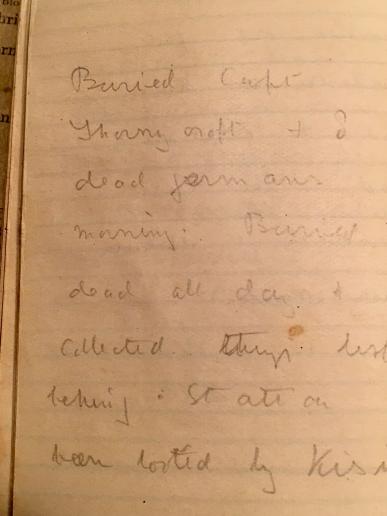 Buried Capt
Thornycroft + 8
dead germans
morning. Buried
dead all day +
collected things
behind. Station
been looted by